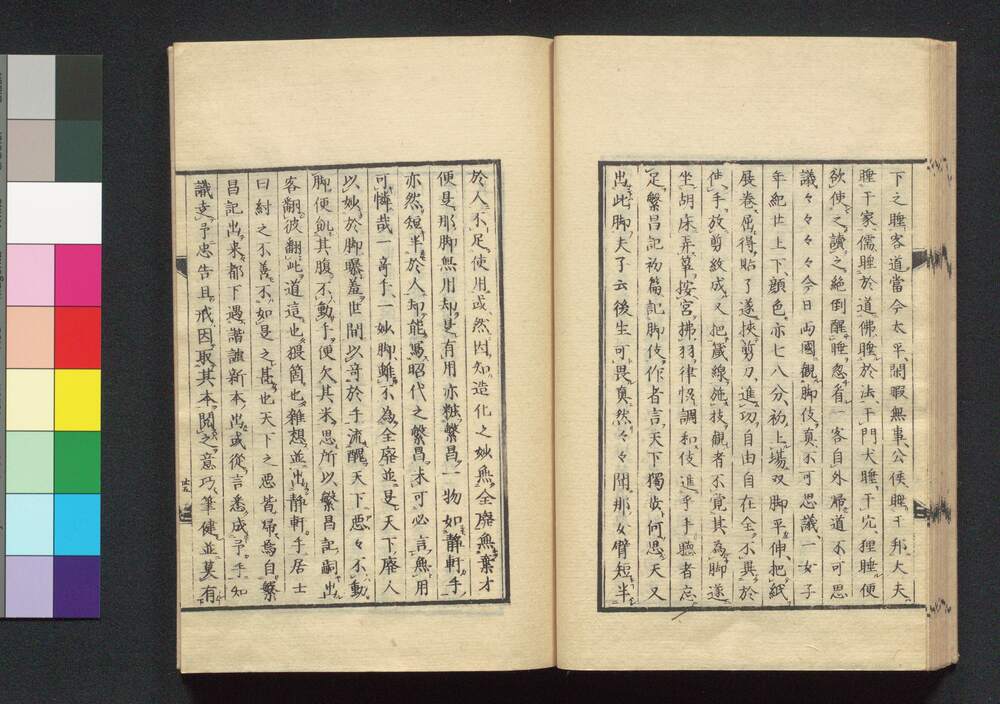 下之睡客道當今太平閑暇無事公侯睡于邦大夫
睡于家儒睡於道佛睡於法于門犬睡于穴狸睡便
欲使之讀之絕倒醒睡忽看一客自外帰道不可思
議々々々々今日両國觀脚伎真不可思議一女子
年紀廿上下顔色亦七八分初上場双脚平伸把紙
展卷屈得貼了遂挾剪刀進功自由自在全不異於
使手放剪紋成又把鍼線施技觀者不覚其為脚遂
坐胡床弄箏按宮拂羽律呂調和伎進乎手聽者忘
足繁昌記初篇記脚伎作者言天下獨此何思天又
出此脚夫子云後生可畏真然々々聞那女臂短半
於人不足使用或然因知造化之妙無全廃無棄才
便是那脚無用却是有用亦粧繁昌一物如静軒手
亦然短半於人却能寫昭代之繁昌未可必言無用
可憐哉一奇手一妙脚雖不為全廃並是天下廃人
以妙於脚曝羞世間以奇於手流醜天下悪々不動
脚便飢其腹不動手便欠其米思所以繁昌記嗣出
客翻彼翻此道這也猥箇也雜想並出静軒手居士
曰紂之不善不如是之甚也天下之悪皆帰焉自繁
昌記出来都下遇諧謔新本出或從言悉成予手知
識吏予忠告且戒因取其本閲之意巧筆健並莫有
廿五